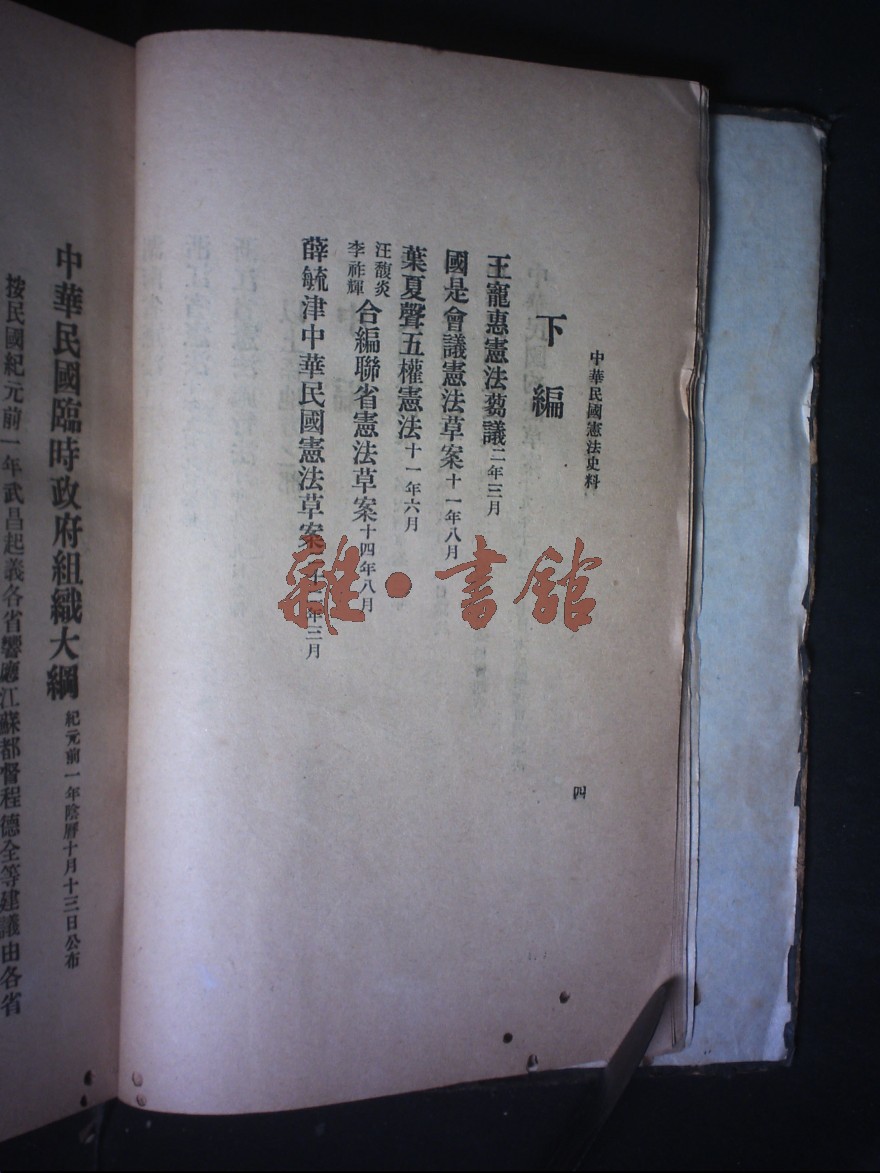 中華民國憲法史料
下編
王寵惠憲法芻議二年三月
國是會議憲法草案十一年八月
葉夏聲五權憲法十一年六月
汪馥炎
李祚輝
合編聯省憲法草案十四年八月
薛毓津中華民國憲法草案年三月
四
雜·書館
中華民國臨時政府組織大綱紀元前一年陰曆十月十三日公布
按民國紀元前一年武昌起義各省響應江蘇都督程德全等建議由各省